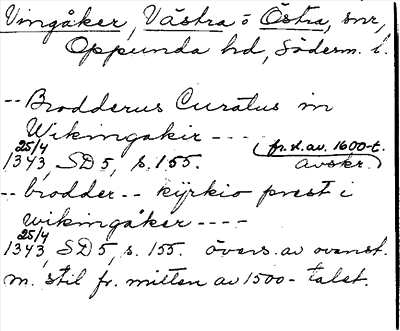 Vingåker, Västra o Östra, snr,
Oppunda hd, Söderm. l.
-- Brodderus Curatus in
Wikingakir ---- (fr. sl. av. 1600-t.
25/4 1343, SD 5, s. 155. avskr.)
-- brodder -- kyrkio prest i
wikingåker ----
25/4 1343, SD 5, s. 155. övers. av ovanst.
m. stil fr. mitten av 1500-talet.